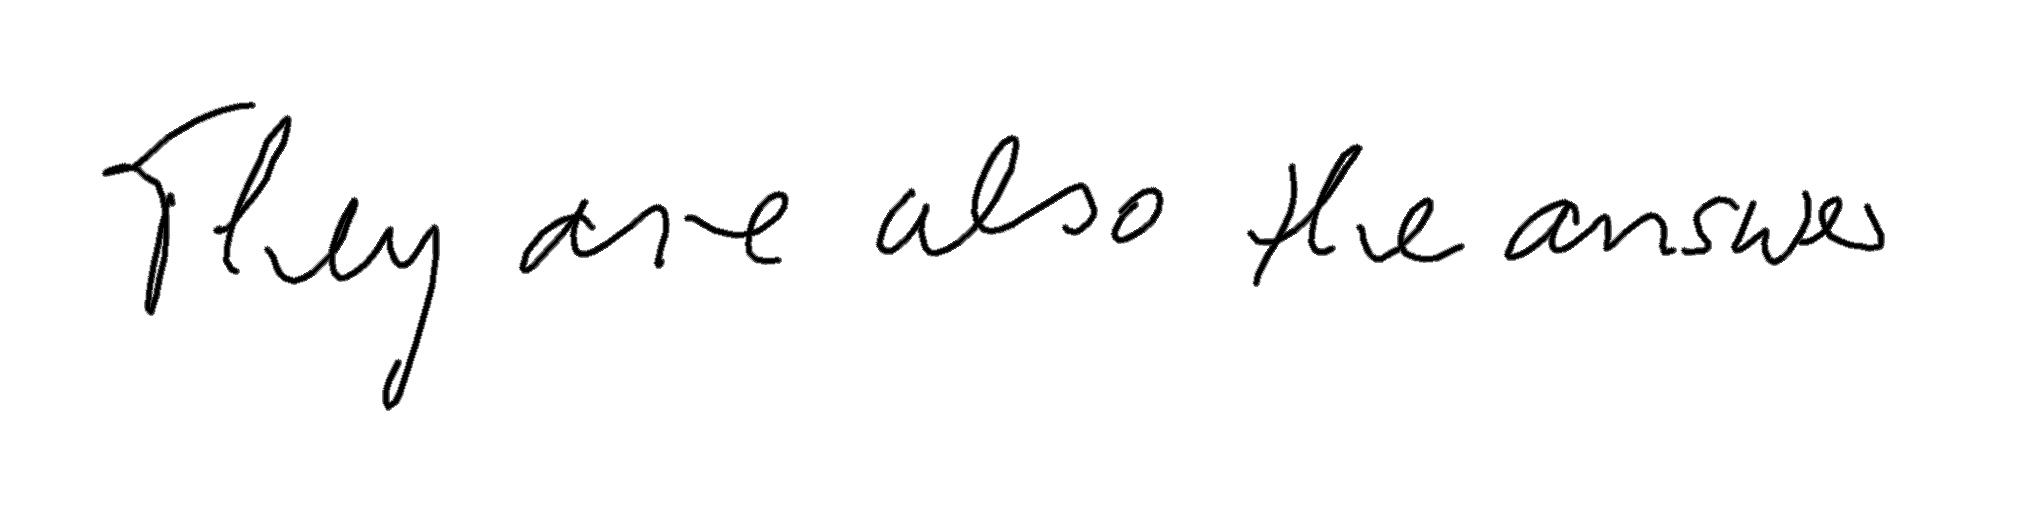 They are also the answer